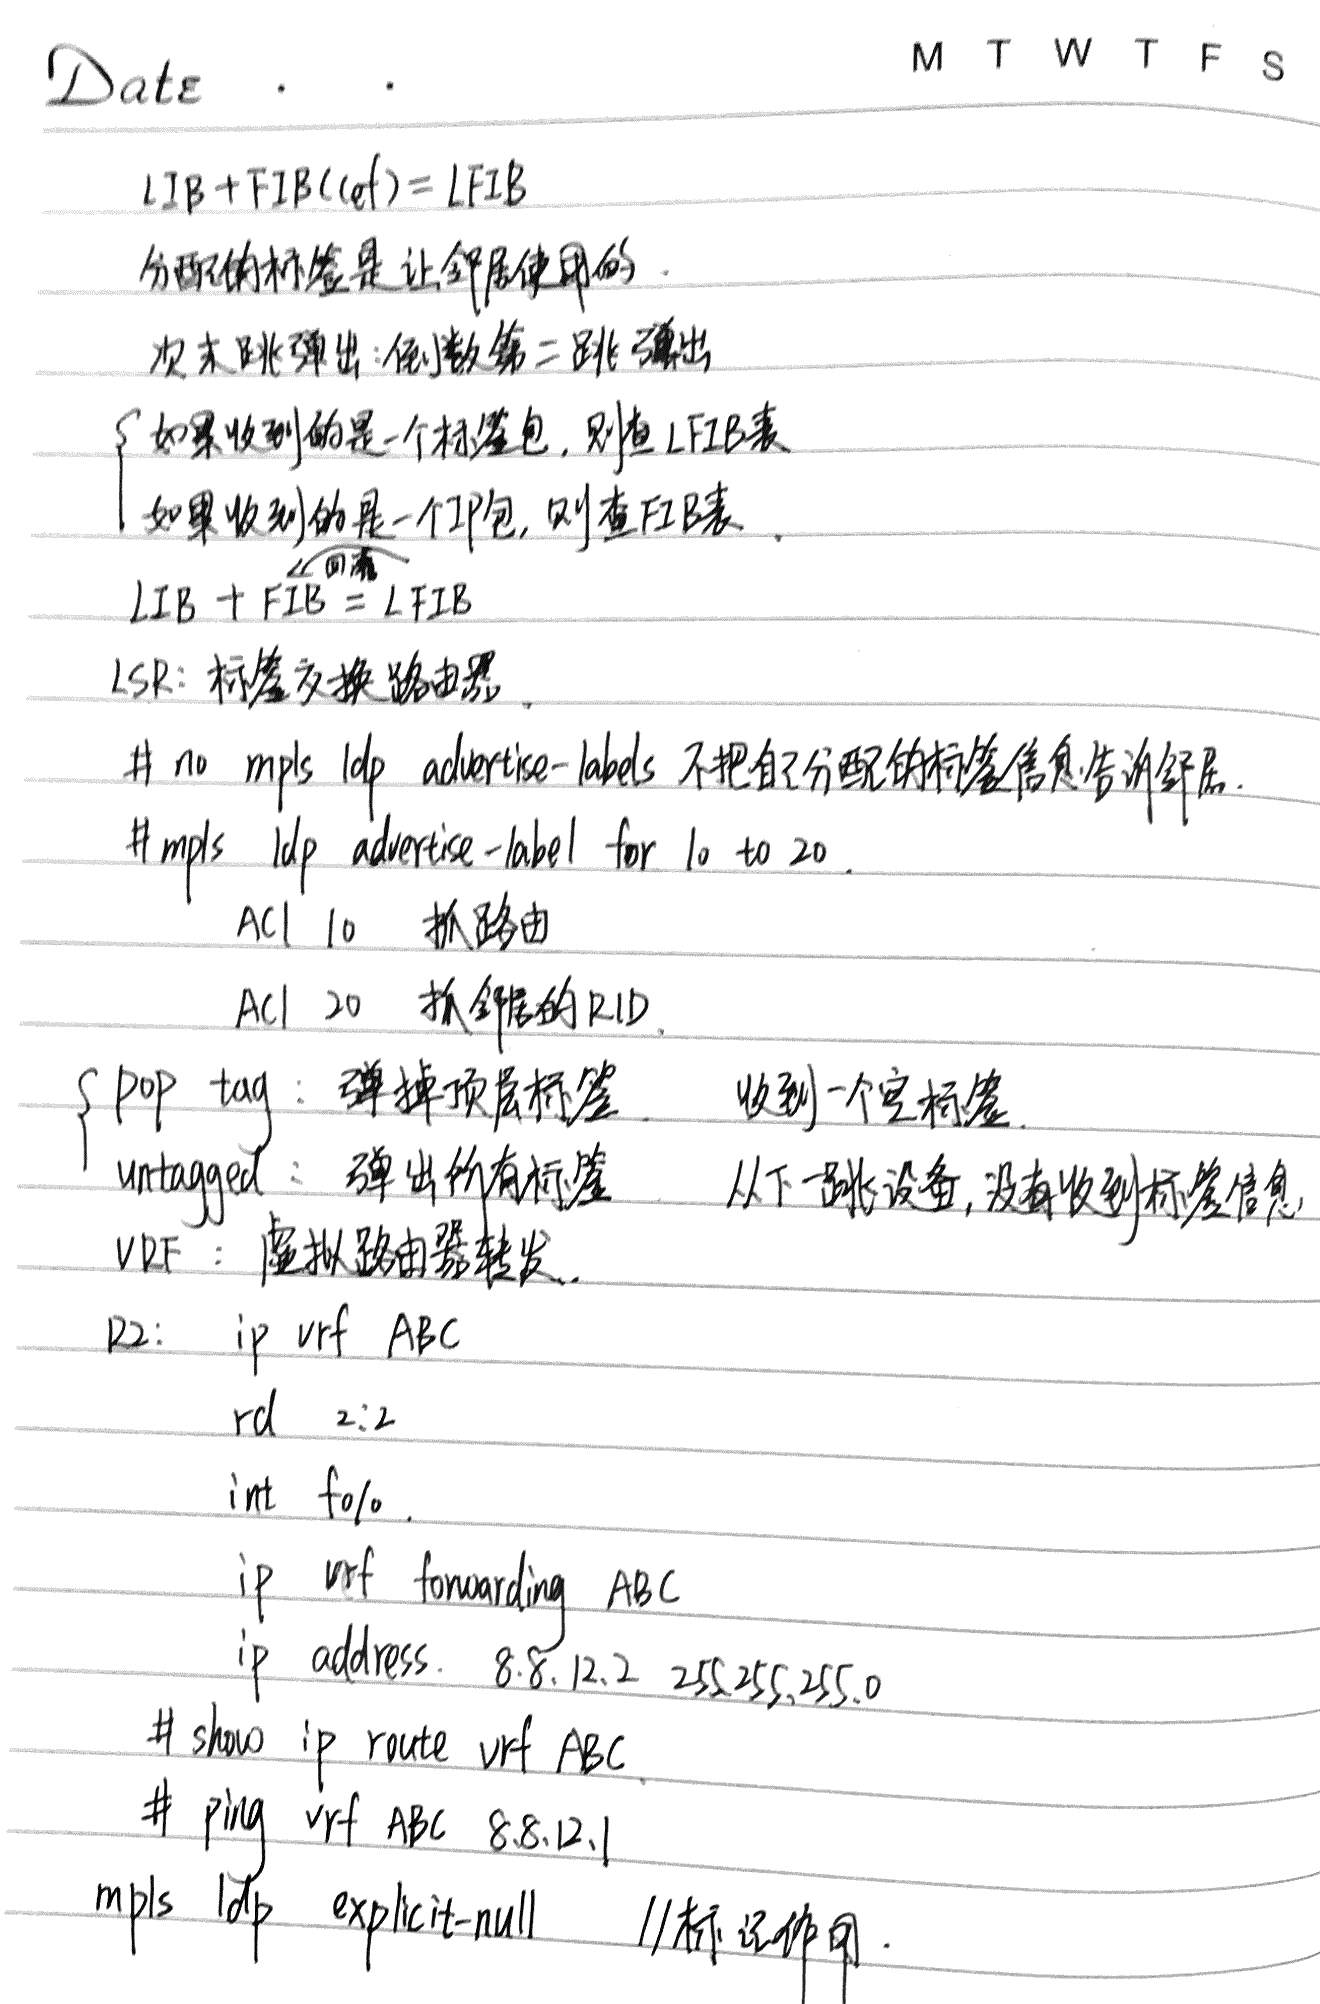 Date . .
M T W T F S
LIB+FIB(cef)=LFIB
分配的标签是让邻居使用的.
次末跳弹出:倒数第二跳弹出
如果收到的是一个标签包,则查LFIB表
如果收到的是一个IP包,则查FIB表.
回流
LIB + FIB = LFIB
LSR: 标签交换路由器.
# no mpls ldp advertise-labels 不把自己分配的标签信息告诉邻居.
# mpls ldp advertise-label for 10 to 20.
ACl 10 抓路由
ACl 20 抓邻居的RID.
pop tag: 弹掉顶层标签. 收到一个空标签.
untagged: 弹出所有标签 从下一跳设备,没有收到标签信息.
VRF: 虚拟路由器转发.
R2: ip vrf ABC
rd 2:2
int f0/0.
ip vrf forwarding ABC
ip address. 8.8.12.2 255.255.255.0
# show ip route vrf ABC.
# ping vrf ABC 8.8.12.1
mpls ldp explicit-null //标记作用.